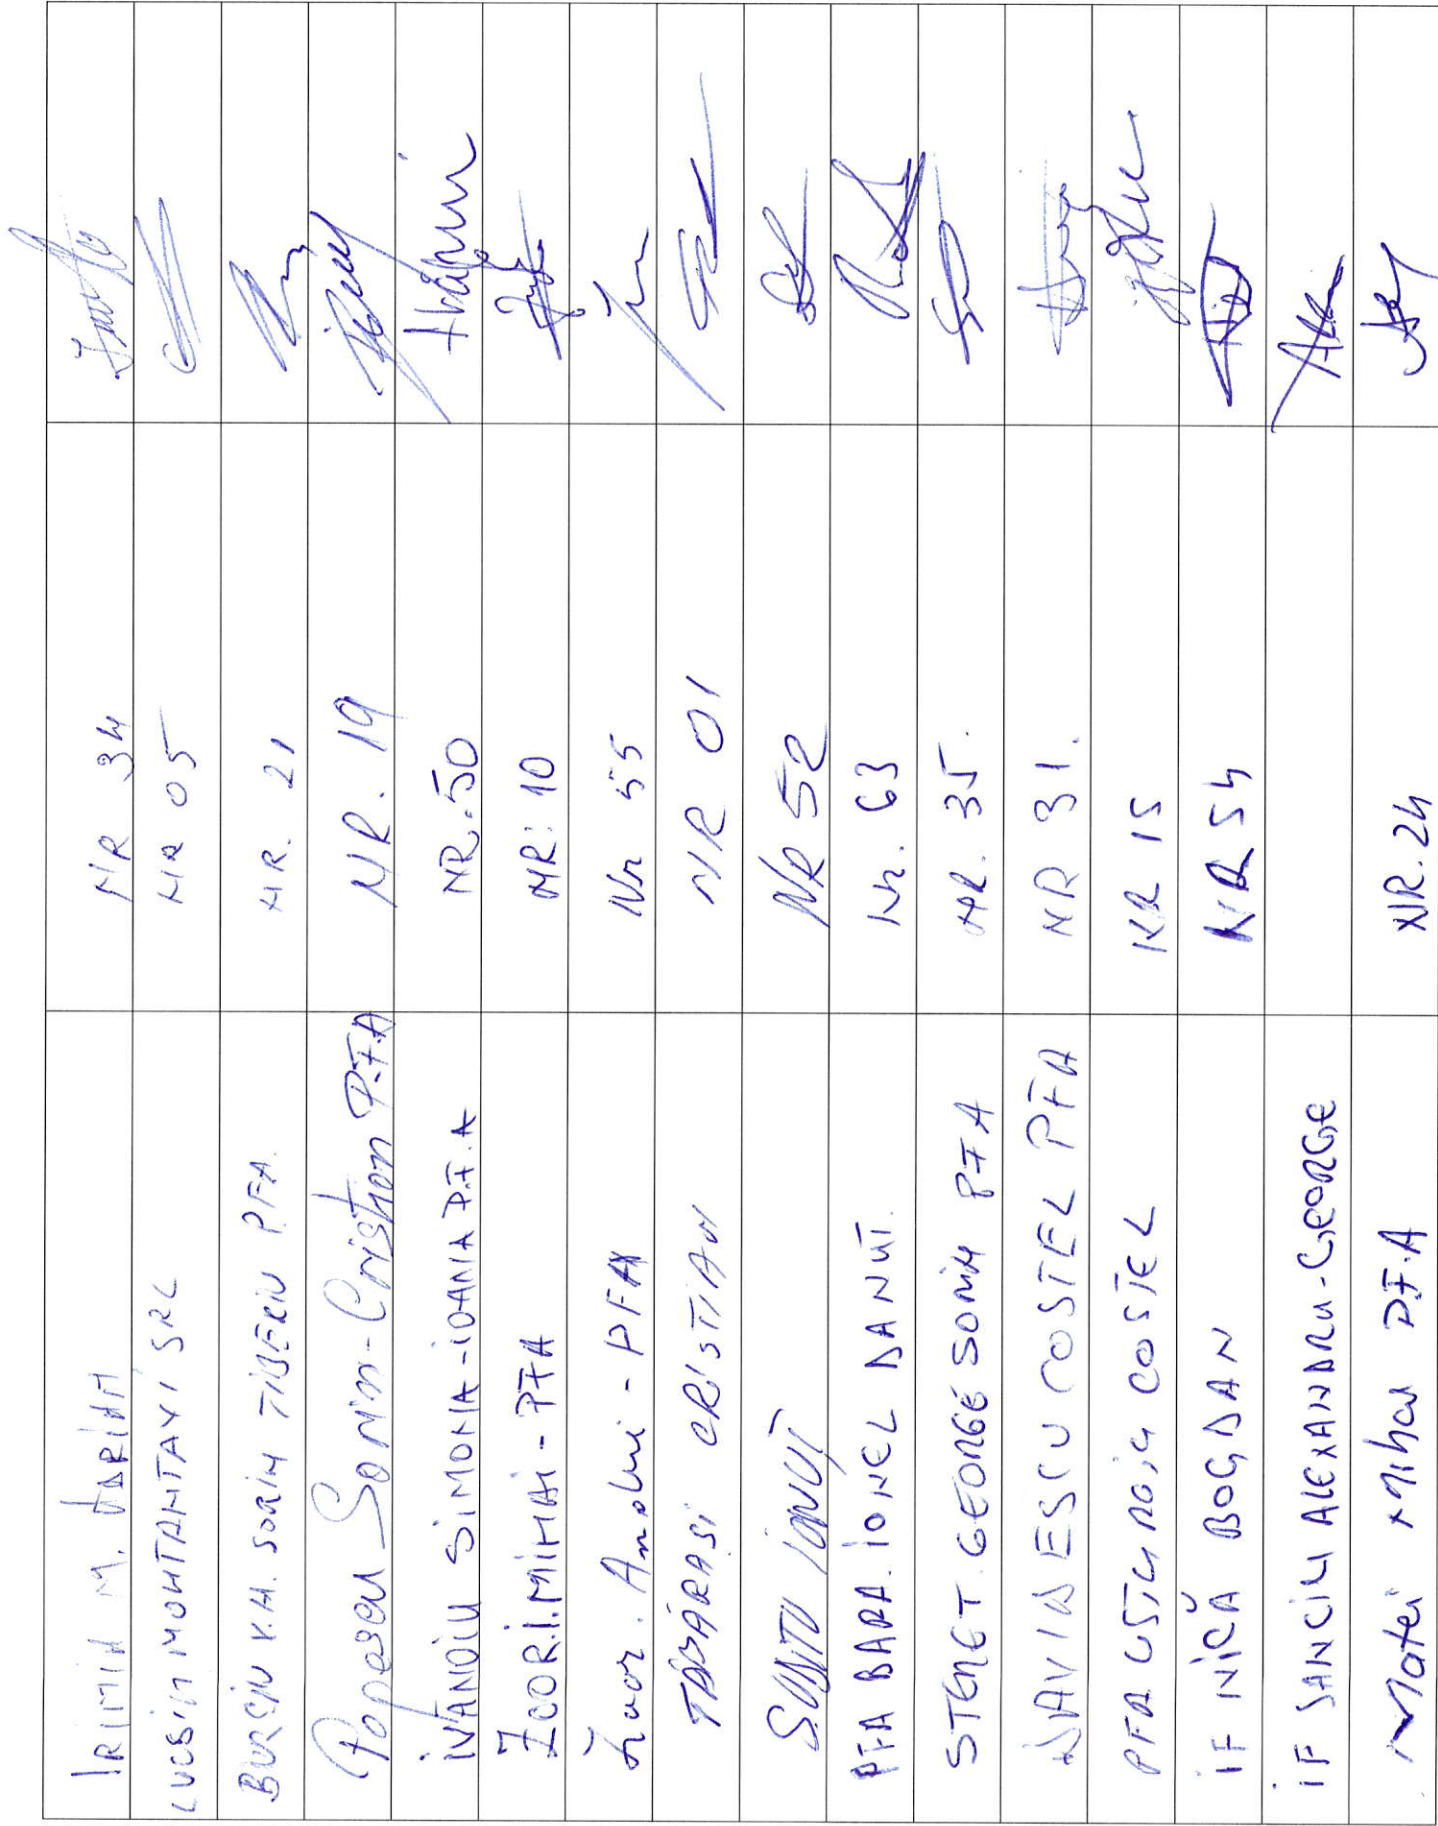 IRIMIA M. MARIAN NR 34
LUCSIM MONTANTAXI SRL NR 05
BURCIU V.M. SORIN TIBERIU PFA. NR. 21
Popescu Sorin-Cristian P.F.A NR. 19
IVANOIU SIMONA-IOANA P.F.A NR. 50
ZOOR.I. MIHAI - PFA NR: 10
Andrei - PFA Nr 55
CRISTIAN NR 01
IONUȚ NR 52
PFA BARA. IONEL DANUȚ. Nr. 63
STEREȚ. GEORGE SORIN PFA NR. 35.
DAVIDESCU COSTEL PFA NR 31.
PFA COSTEL NR 15
IF NICĂ BOGDAN NR 54
IF SANCIU ALEXANDRU-GEORGE
Matei Mihai P.F.A NR. 24